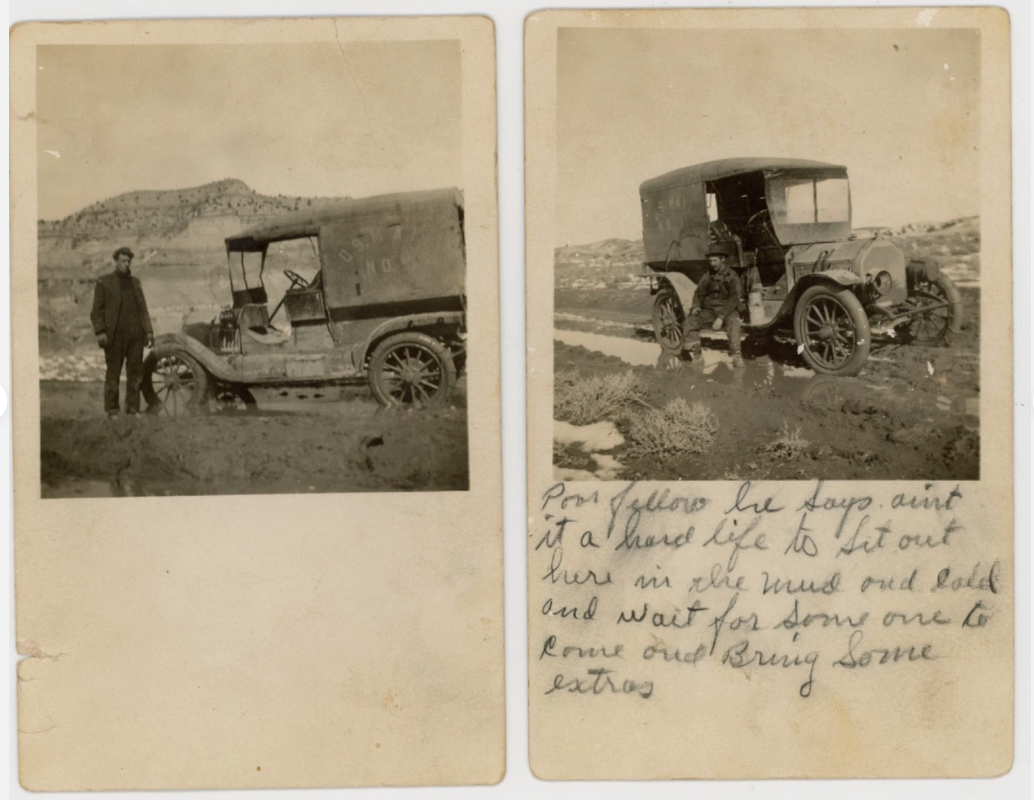 NO.
Poor fellow he says aint
it a hard life to sit out
here in the mud and cold
and wait for some one to
come and Bring Some
extras